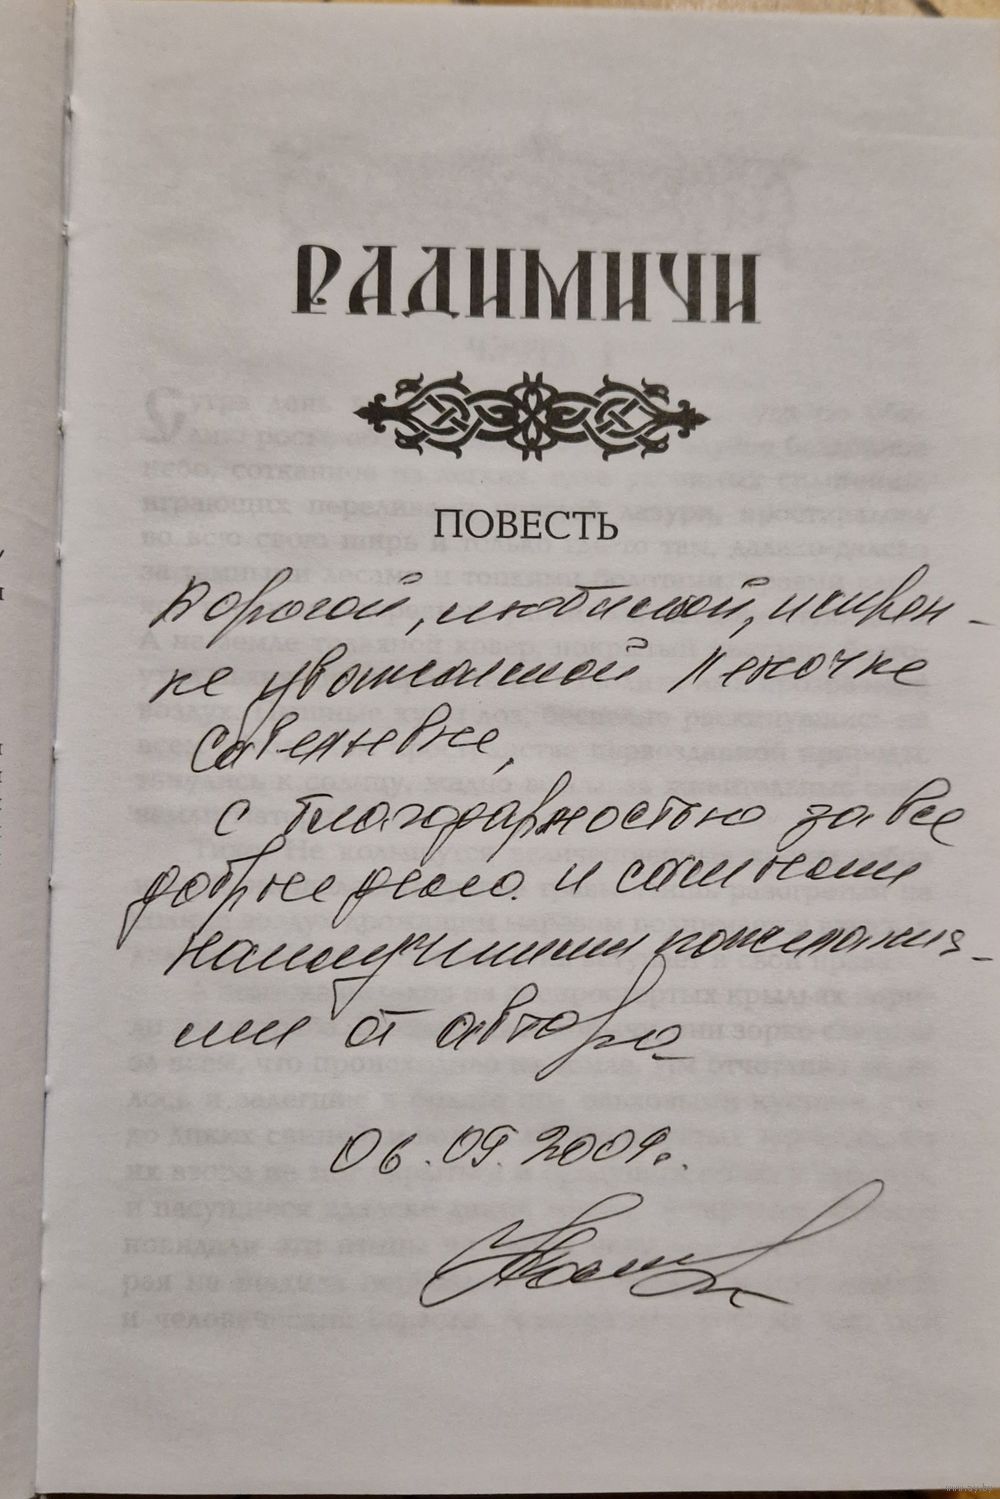 РАДИМИЧИ
ПОВЕСТЬ
Дорогой, любимой, искрен-
не уважаемой Леночке
Савельевне,
с благодарностью за все
добрые дела и самыми
наилучшими пожелания-
ми от автора
06.09.2009.